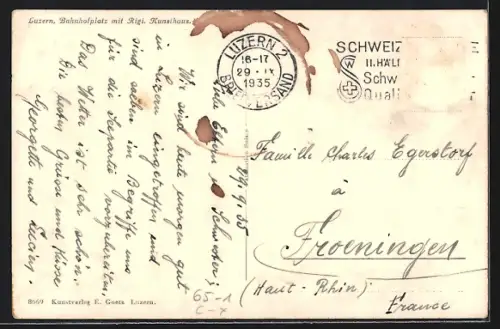 Luzern, Bahnhofplatz mit Rigi. Kunsthaus.
LUZERN 2
16-17
29. IX
1935
BRIEFVERSAND
SCHWEIZ
II. HÄL
Schw
Quali
29/9/35
Liebe Eltern u. Schwester!
Wir sind heute morgen gut
in Luzern eingetroffen und
sind soeben im Begriffe uns
für die Departie vorzubereiten.
Das Wetter ist sehr schön.
Die besten Grüsse und Küsse
Georgette und Lucien.
Famille Charles Egerstorf
à
Froeningen
(Haut-Rhin)
France
65-1
C-7
8669 Kunstverlag E. Goetz Luzern.